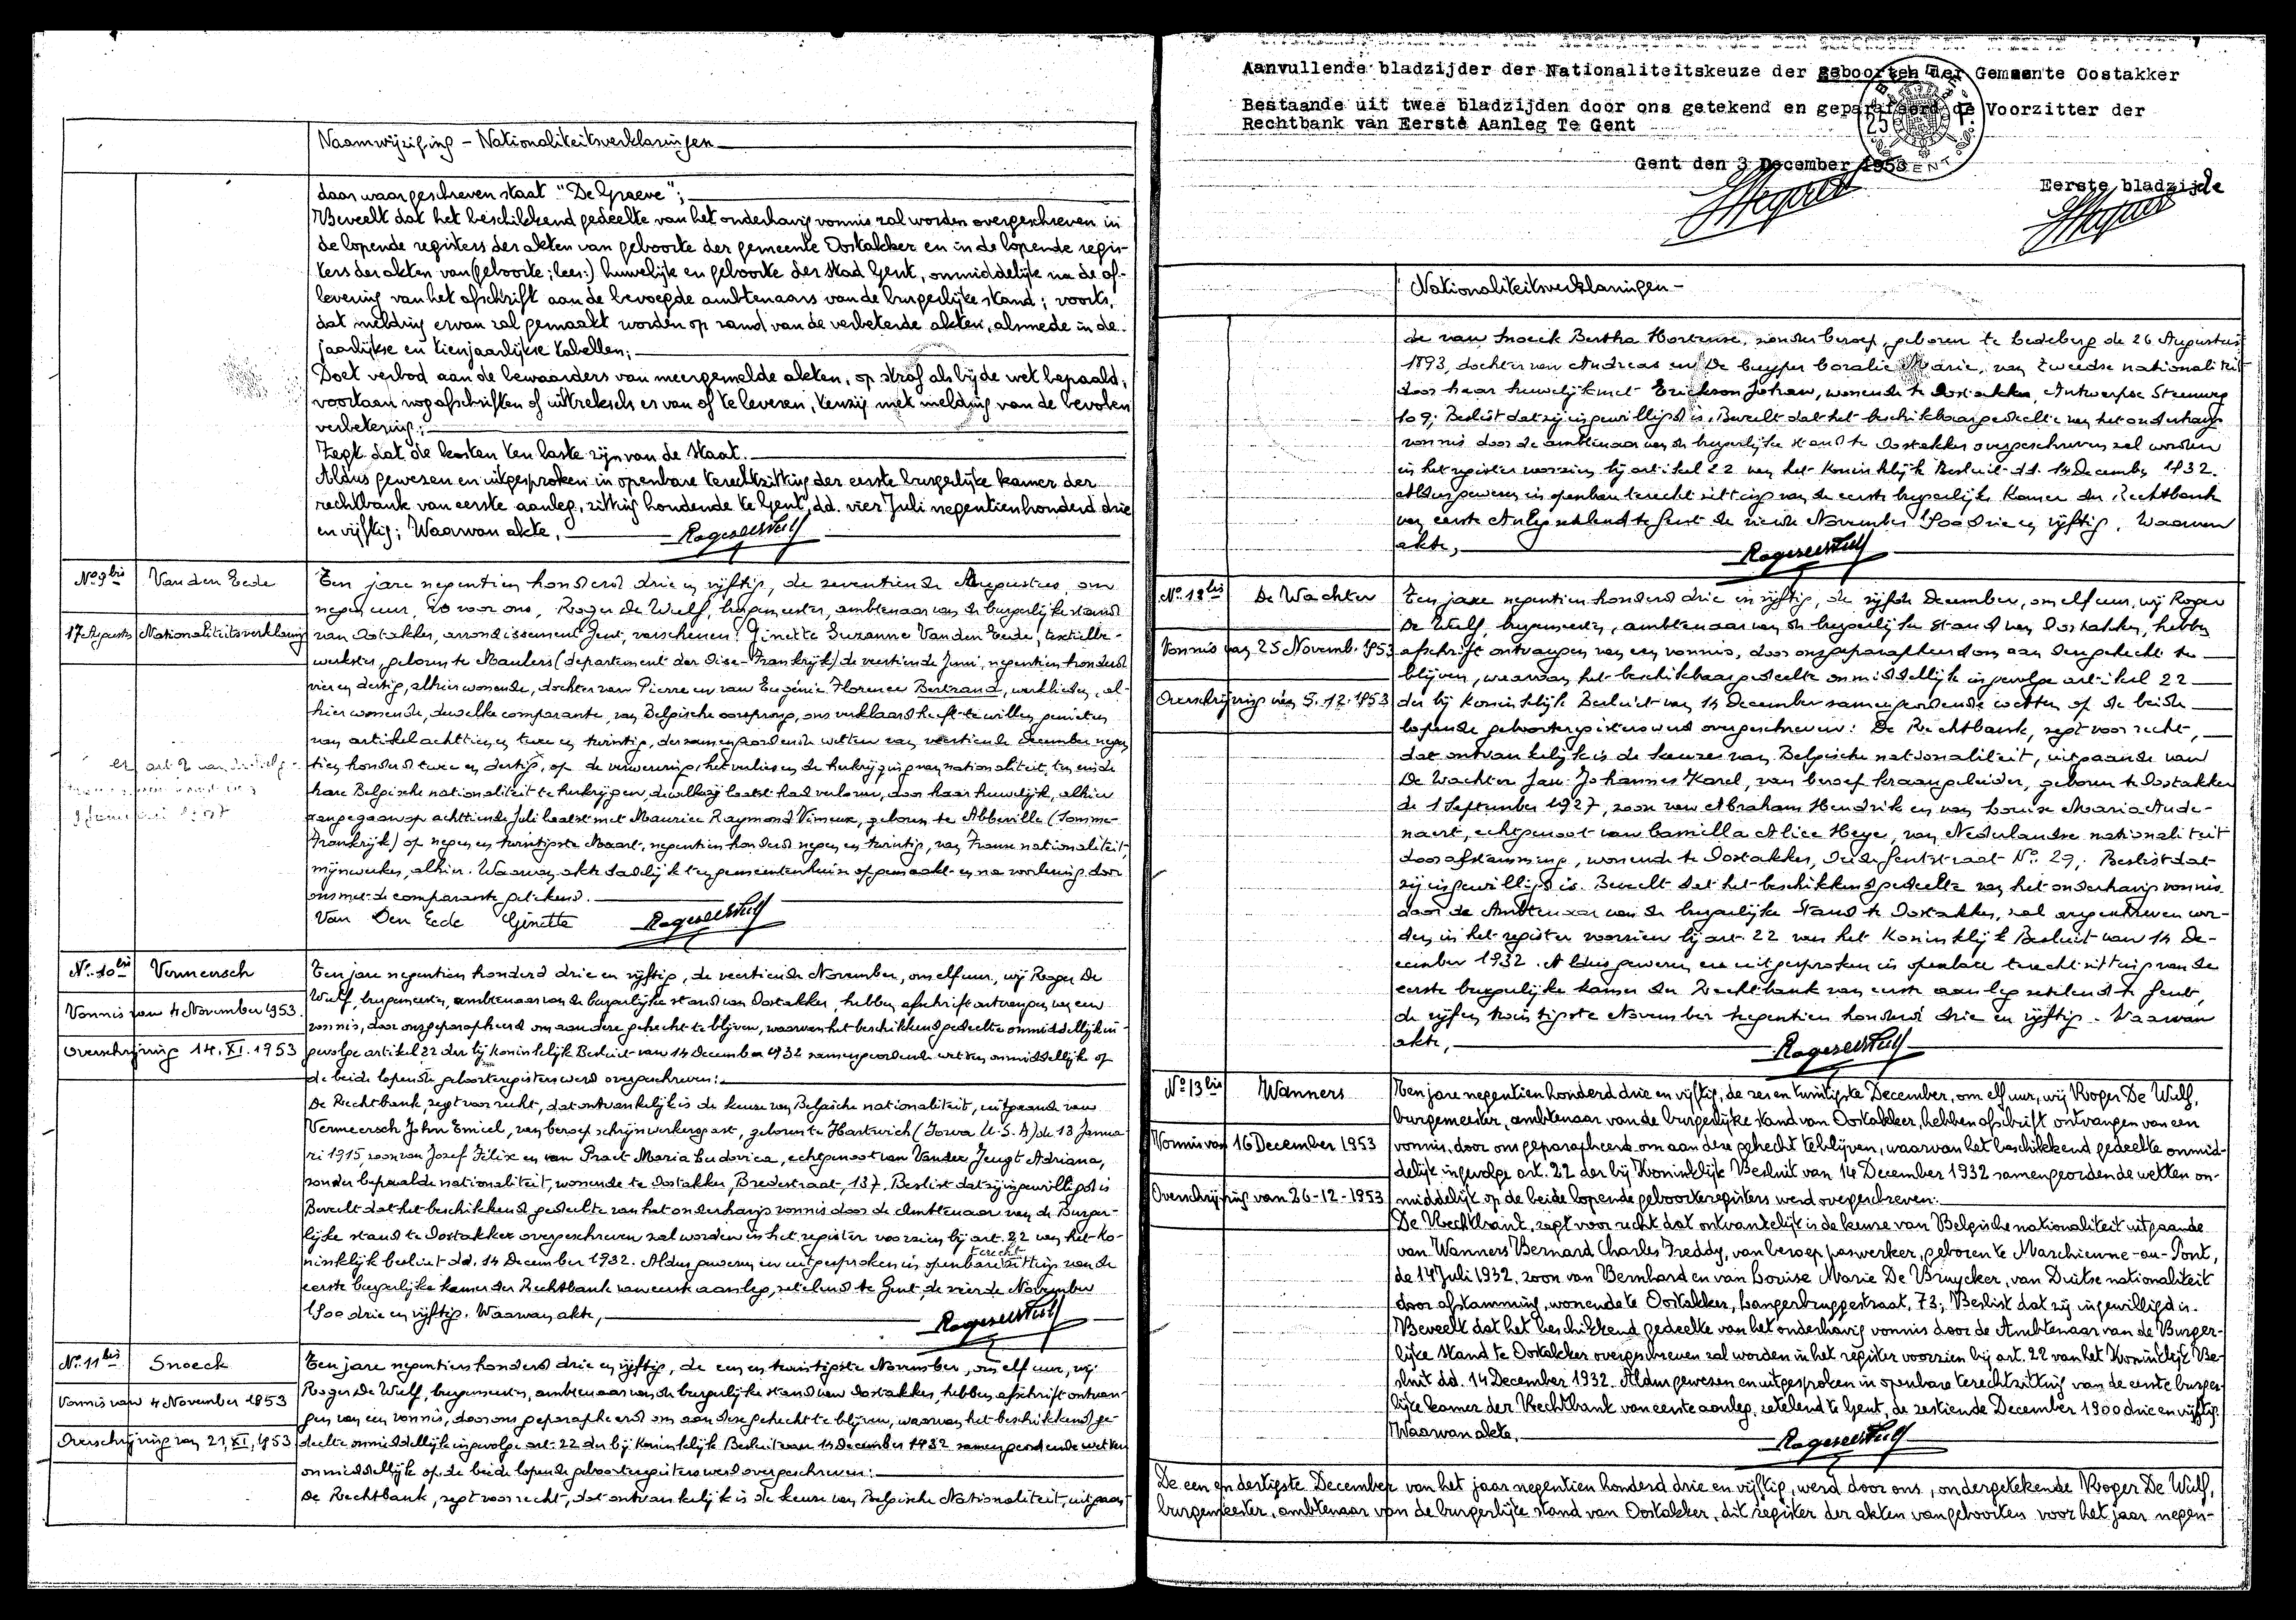 Naamwijziging - Nationaliteitsverklaringen
daar waar geschreven staat "De Graeve";
Beveelt dat het beschikkend gedeelte van het onderhavig vonnis zal worden overgeschreven in
de lopende registers der akten van geboorte der gemeente Oostakker en in de lopende regis-
ters der akten van (geboorte; lees:) huwelijk en geboorte der stad Gent, onmiddelijk na de af-
levering van het afschrift aan de bevoegde ambtenaars van de burgerlijke stand; voorts,
dat melding ervan zal gemaakt worden op rand van de verbeterde akten, alsmede in de
jaarlijkse en tienjaarlijkse tabellen;
Doet verbod aan de bewaarders van meergemelde akten, op straf als bij de wet bepaald,
voortaan nog afschriften of uittreksels er van af te leveren, tenzij met melding van de bevolen
verbetering;
Zegt dat de kosten ten laste zijn van de Staat.
Aldus gewesen en uitgesproken in openbare terechtzitting der eerste burgerlijke kamer der
rechtbank van eerste aanleg, zitting houdende te Gent, dd. vier Juli negentienhonderd drie
en vijftig; Waarvan akte.
Roger De Wulf
No. 9bis Van den Eede
17 Augustus Nationaliteitsverklaring
Ten jare negentien honderd drie en vijftig, de zeventiende Augustus, om
negen uur, 20 voor ons, Roger De Wulf, burgemeester, ambtenaar van de burgerlijke stand
van Oostakker, arrondissement Gent, verschenen: Ginette Suzanne Van den Eede, textielbe-
werkster, geboren te Maulers (departement der Oise-Frankrijk) de veertiende Juni, negentien honderd
vier en dertig, alhier wonende, dochter van Pierre en van Eugénie Florence Bertrand, werklieden, al-
hier wonende, dewelke comparante, van Belgische oorsprong, ons verklaard heeft te willen genieten
van artikel achttien en twee en twintig, der samengeordende wetten van veertiende December negen
tien honderd twee en dertig, op de verwerving, het verlies en de herkrijging van nationaliteit, ten einde
hare Belgische nationaliteit te herkrijgen, dewelke zij laatst had verloren, door haar huwelijk, alhier
aangegaan op achttiende Juli laatst met Maurice Raymond Vimeux, geboren te Abbeville (Somme-
Frankrijk) op negen en twintigste Maart, negentien honderd negen en twintig, van Franse nationaliteit,
mijnwerker, alhier. Waarvan akte dadelijk ten gemeentenhuize opgemaakt en na voorlezing door
ons met de comparante getekend.
Van Den Eede Ginette Roger De Wulf
No. 10bis Vermeersch
Vonnis van 4 November 1953
Overschrijving 14.XI.1953
Ten jare negentien honderd drie en vijftig, de veertiende November, om elf uur, wij Roger De
Wulf, burgemeester, ambtenaar van de burgerlijke stand van Oostakker, hebben afschrift ontvangen van een
vonnis, door ons geparapheerd om aan deze gehecht te blijven, waarvan het beschikkend gedeelte onmiddellijk in-
gevolge artikel 22 der bij Koninklijk Besluit van 14 December 1932 samengeordende wetten onmiddellijk op
de beide lopende geboorteregisters werd overgeschreven:
De Rechtbank, zegt voor recht, dat ontvankelijk is de keuze van Belgische nationaliteit, uitgaande van
Vermeersch John Emiel, van beroep schrijnwerkersgast, geboren te Hartwich (Iowa U.S.A) de 13 Janua-
ri 1915, zoon van Jozef Felix en van Praet Maria Ludovica, echtgenoot van Vander Jeugt Adriana,
zonder bepaalde nationaliteit, wonende te Oostakker, Bredestraat, 137. Beslist dat zij ingewilligd is
Beveelt dat het beschikkend gedeelte van het onderhavig vonnis door de Ambtenaar van de Burger-
lijke stand te Oostakker overgeschreven zal worden in het register voorzien bij art. 22 van het Ko-
ninklijk besluit dd. 14 December 1932. Aldus gewezen en uitgesproken in openbare terecht zitting van de
eerste burgerlijke kamer der Rechtbank van eerste aanleg, zetelend te Gent, de vierde November
1900 drie en vijftig. Waarvan akte,
Roger De Wulf
No. 11bis Snoeck
Vonnis van 4 November 1953
Overschrijving van 21.XI.1953
Ten jare negentien honderd drie en vijftig, de een en twintigste November, om elf uur, wij
Roger De Wulf, burgemeester, ambtenaar van de burgerlijke stand van Oostakker, hebben afschrift ontvan-
gen van een vonnis, door ons geparapheerd om aan deze gehecht te blijven, waarvan het beschikkend ge-
deelte onmiddellijk ingevolge art. 22 der bij Koninklijk Besluit van 14 December 1932 samengeordende wetten
onmiddellijk op de beide lopende geboorteregisters werd overgeschreven:
De Rechtbank, zegt voor recht, dat ontvankelijk is de keuze van Belgische Nationaliteit, uitgaan-
Aanvullende bladzijder der Nationaliteitskeuze der geboorten der Gemeente Oostakker
Bestaande uit twee bladzijden door ons getekend en geparafeerd de Voorzitter der
Rechtbank van Eerste Aanleg Te Gent
Gent den 3 December 1953
Eerste bladzijde
Nationaliteitsverklaringen -
de van Snoeck Bertha Hortense, zonder beroep, geboren te Ledeberg de 26 Augustus
1893, dochter van Andreas en De Cuyper Coralie Marie, van Zweedse nationaliteit
door haar huwelijk met Erickson Johan, wonende te Oostakker, Antwerpse Steenweg
109; Beslist dat zij ingewilligd is. Beveelt dat het beschikbaar gedeelte van het onderhavig
vonnis door de ambtenaar van de burgerlijke stand te Oostakker overgeschreven zal worden
in het register voorzien bij artikel 22 van het Koninklijk Besluit dd. 14 December 1932.
Aldus gewezen in openbare terecht zitting van de eerste burgerlijke Kamer der Rechtbank
van eerste Anleg zetelend te Gent de vierde November 1900 drie en vijftig. Waarvan
akte,
Roger De Wulf
No. 12bis De Wachter
Vonnis van 25 Novemb. 1953
Overschrijving van 5.12.1953
Ten jare negentien honderd drie en vijftig, de vijfde December, om elf uur, wij Roger
De Wulf, burgemeester, ambtenaar van de burgerlijke stand van Oostakker, hebben
afschrift ontvangen van een vonnis, door ons geparapheerd om aan deze gehecht te
blijven, waarvan het beschikbaar gedeelte onmiddellijk ingevolge artikel 22
der bij Koninklijk Besluit van 14 December samengeordende wetten op de beide
lopende geboorteregisters werd overgeschreven: De Rechtbank, zegt voor recht,
dat ontvankelijk is de keuze van Belgische nationaliteit, uitgaande van
De Wachter Jan Johannes Karel, van beroep kraangeleider, geboren te Oostakker
de 1 September 1927, zoon van Abraham Hendrik en van Louise Maria Aude-
naert, echtgenoot van Camilla Alice Heye, van Nederlandse nationaliteit
door afstamming, wonende te Oostakker, Oude Gentstraat No. 29; Beslist dat
zij ingewilligd is. Beveelt dat het beschikkend gedeelte van het onderhavig vonnis
door de Ambtenaar van de burgerlijke Stand te Oostakker, zal overgeschreven wor-
den in het register voorzien bij art. 22 van het Koninklijk Besluit van 14 De-
cember 1932. Aldus gewezen en uitgesproken in openbare terecht zitting van de
eerste burgerlijke kamer der Rechtbank van eerste aanleg zetelend te Gent,
de vijf en twintigste November negentien honderd drie en vijftig. Waarvan
akte,
Roger De Wulf
No. 13bis Wanners
Vonnis van 16 December 1953
Overschrijving van 26-12-1953
Ten jare negentien honderd drie en vijftig, de zes en twintigste December, om elf uur, wij Roger De Wulf,
burgemeester, ambtenaar van de burgerlijke stand van Oostakker, hebben afschrift ontvangen van een
vonnis, door ons geparapheerd om aan deze gehecht te blijven, waarvan het beschikkend gedeelte onmid-
delijk ingevolge art. 22 der bij Koninklijk Besluit van 14 December 1932 samengeordende wetten on-
middelijk op de beide lopende geboorteregisters werd overgeschreven:
De Rechtbank, zegt voor recht dat ontvankelijk is de keuse van Belgische nationaliteit uitgaande
van Wanners Bernard Charles Freddy, van beroep paswerker, geboren te Marchienne-au-Pont,
de 14 Juli 1932, zoon van Bernhard en van Louise Marie De Bruycker, van Duitse nationaliteit
door afstamming, wonende te Oostakker, Langerbruggestraat, 73; Beslist dat zij ingewilligd is.
Beveelt dat het beschikkend gedeelte van het onderhavig vonnis door de Ambtenaar van de Burger-
lijke Stand te Oostakker overgeschreven zal worden in het register voorzien bij art. 22 van het Koninklijk Be-
sluit dd. 14 December 1932. Aldus gewesen en uitgesproken in openbare terechtzitting van de eerste burger-
lijke kamer der Rechtbank van eerste aanleg, zetelend te Gent, de zestiende December 1900 drie en vijftig.
Waarvan akte.
Roger De Wulf
De een en dertigste December van het jaar negentien honderd drie en vijftig, werd door ons, ondergetekende Roger De Wulf,
burgemeester, ambtenaar van de burgerlijke stand van Oostakker, dit register der akten van geboorten voor het jaar negen-